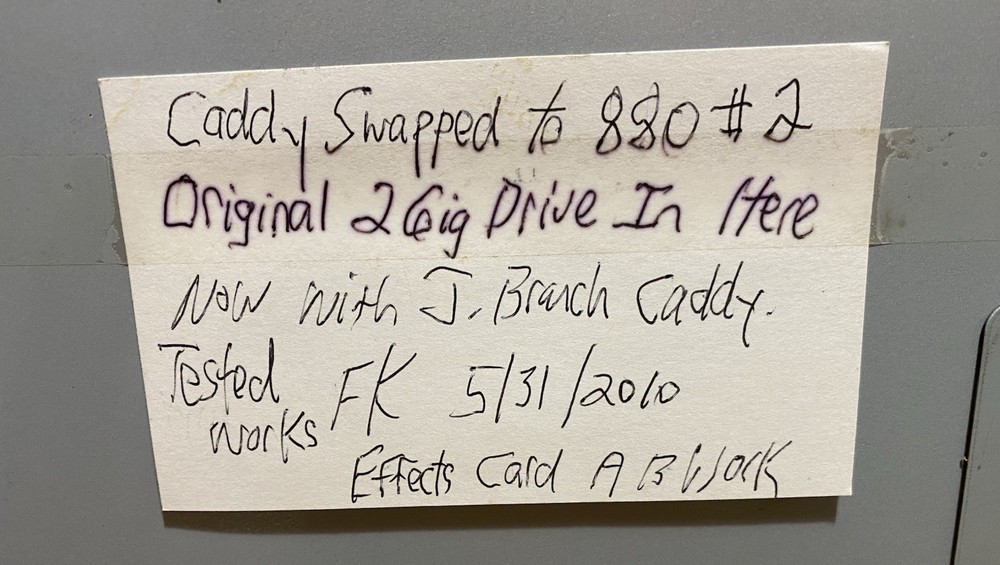 Caddy Swapped to 880 #2
Original 2Gig Drive In Here
Now with J. Branch Caddy.
Tested FK 5/31/2010
works
Effects Card A B Work